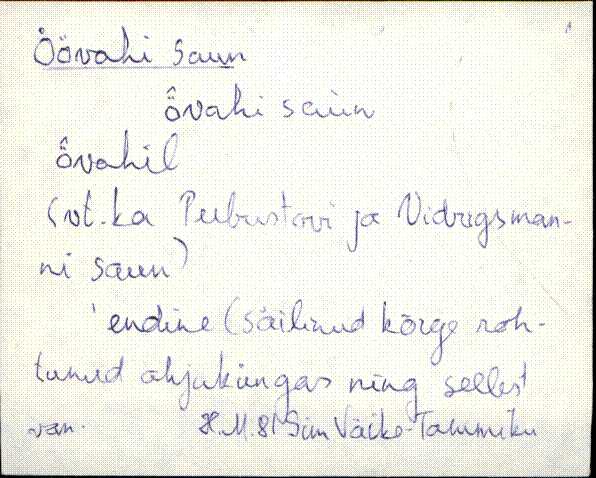 Öövahi saun
ȫvahi sauǹ
ȫvahil
(vt. ka Peebustovi ja Vidrugsman-
ni saun)
'endine (säilinud kõrge roh-
tunud ahjuküngas ning sellest
van. H.M.81 Sim Väike-Tammiku